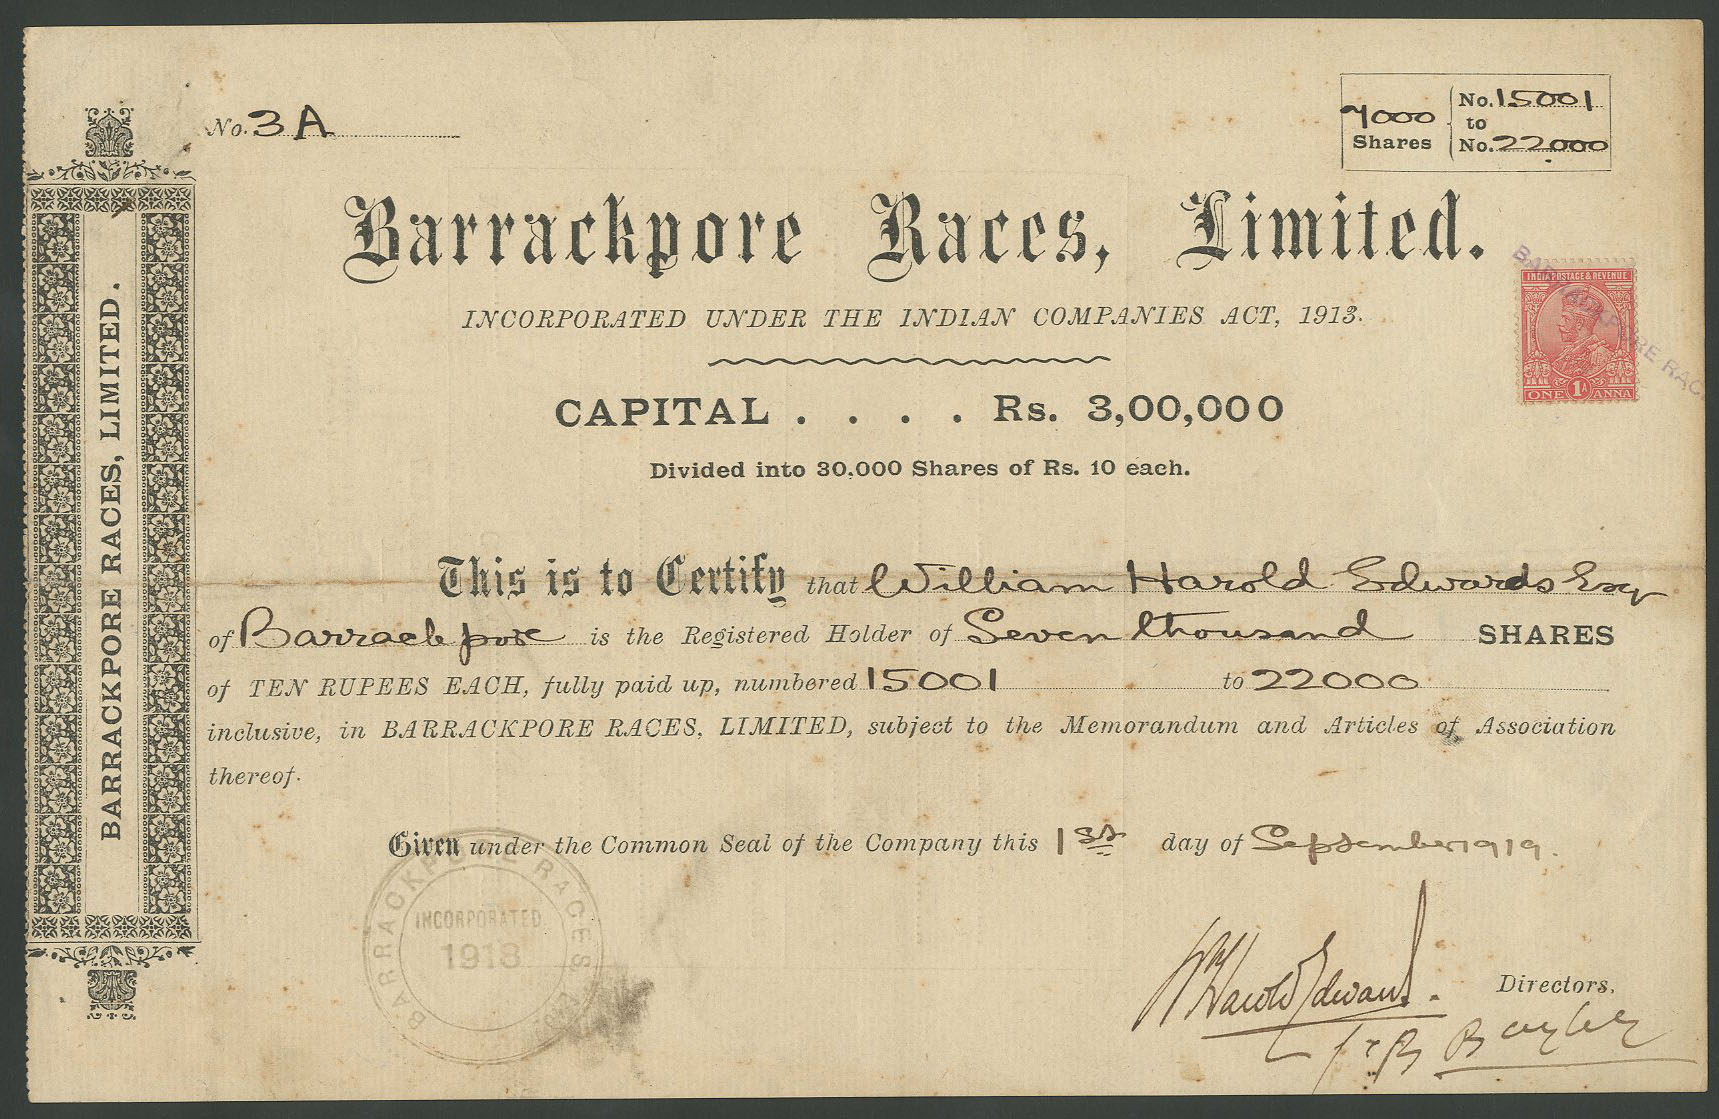 No. 3 A
7000 Shares
No. 15001
to
No. 22000
Barrackpore Races, Limited.
INCORPORATED UNDER THE INDIAN COMPANIES ACT, 1913.
INDIA POSTAGE & REVENUE
1A
ONE ANNA
BARRACKPORE RAC
CAPITAL . . . . Rs. 3,00,000
Divided into 30,000 Shares of Rs. 10 each.
This is to Certify that William Harold Edwards Esqr
of Barrackpore is the Registered Holder of Seven thousand SHARES
of TEN RUPEES EACH, fully paid up, numbered 15001 to 22000
inclusive, in BARRACKPORE RACES, LIMITED, subject to the Memorandum and Articles of Association
thereof.
Given under the Common Seal of the Company this 1st day of September 1919.
BARRACKPORE RACES
INCORPORATED
1918
Wm Harold Edwards.
Directors.
Bayley
BARRACKPORE RACES, LIMITED.